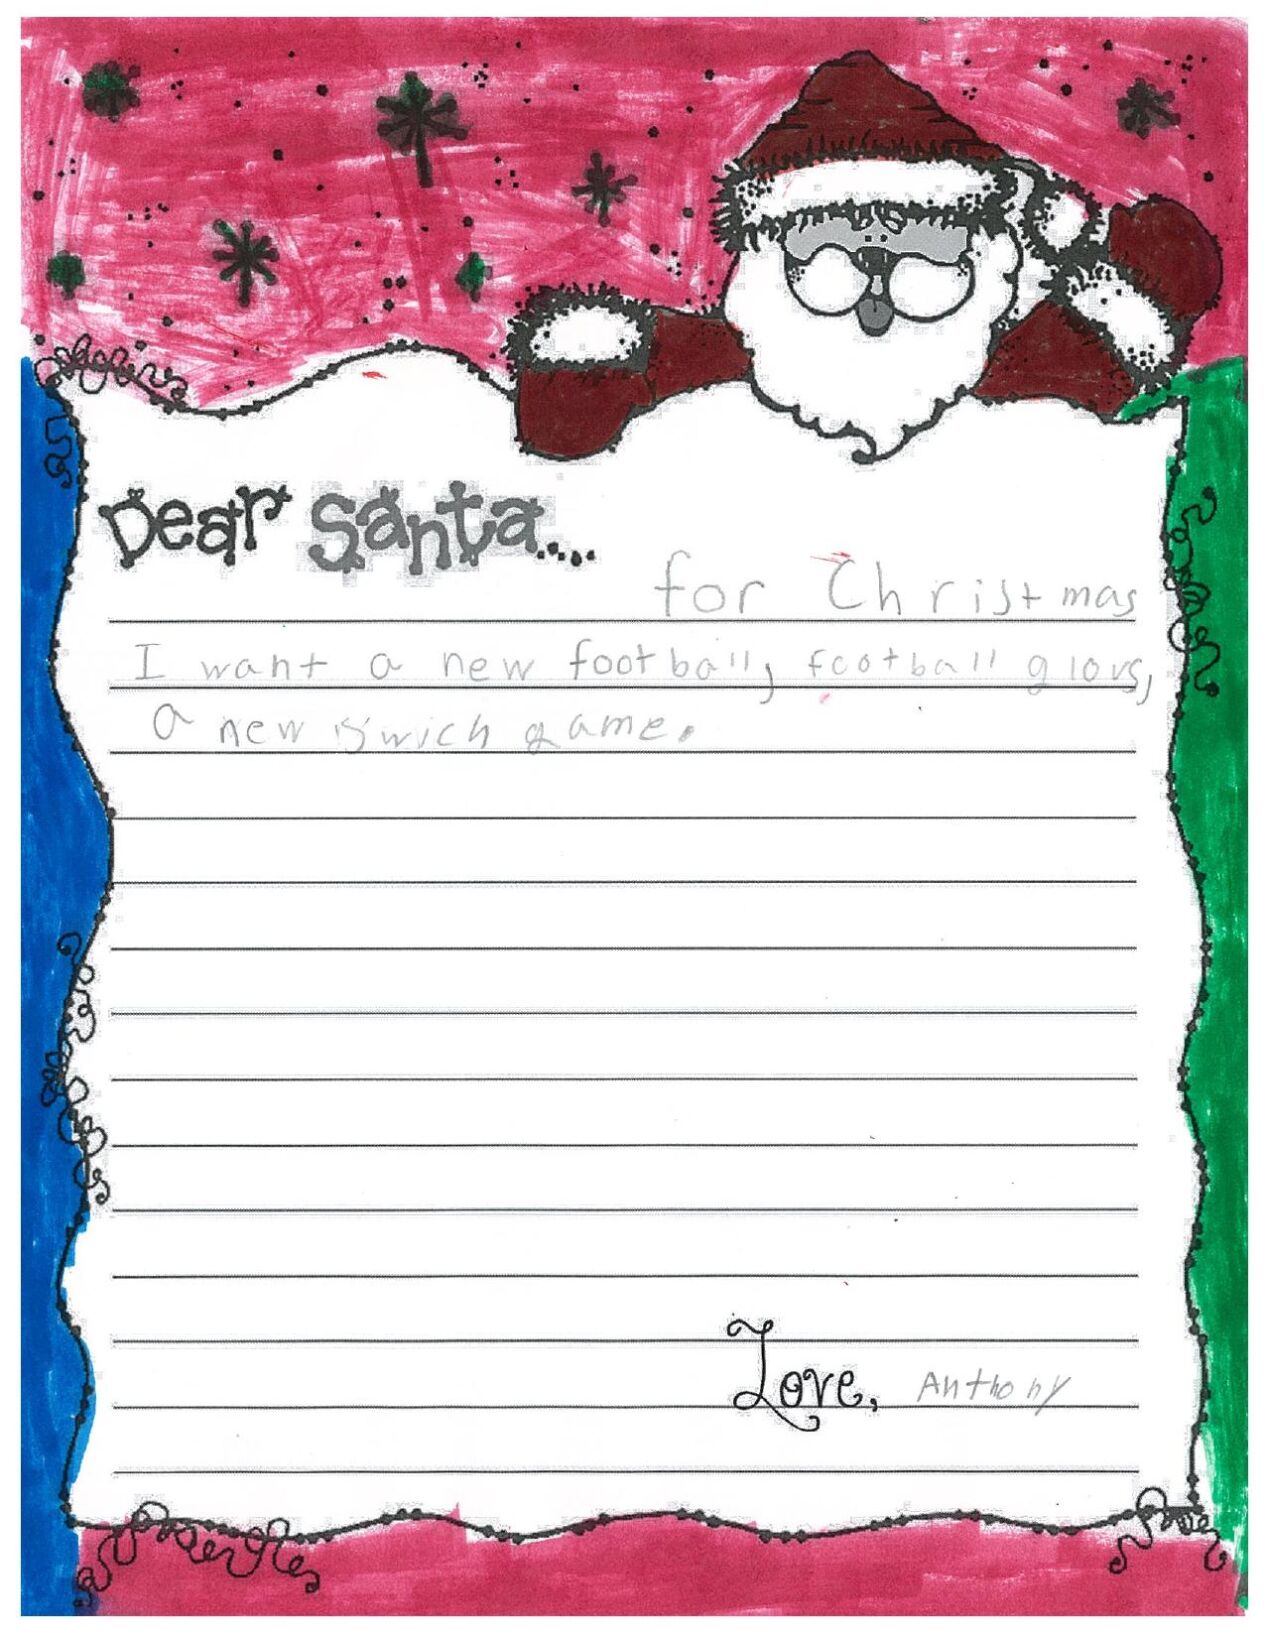 Dear Santa....
for Christmas
I want a new football, football glovs,
a new swich game.
Love, Anthony